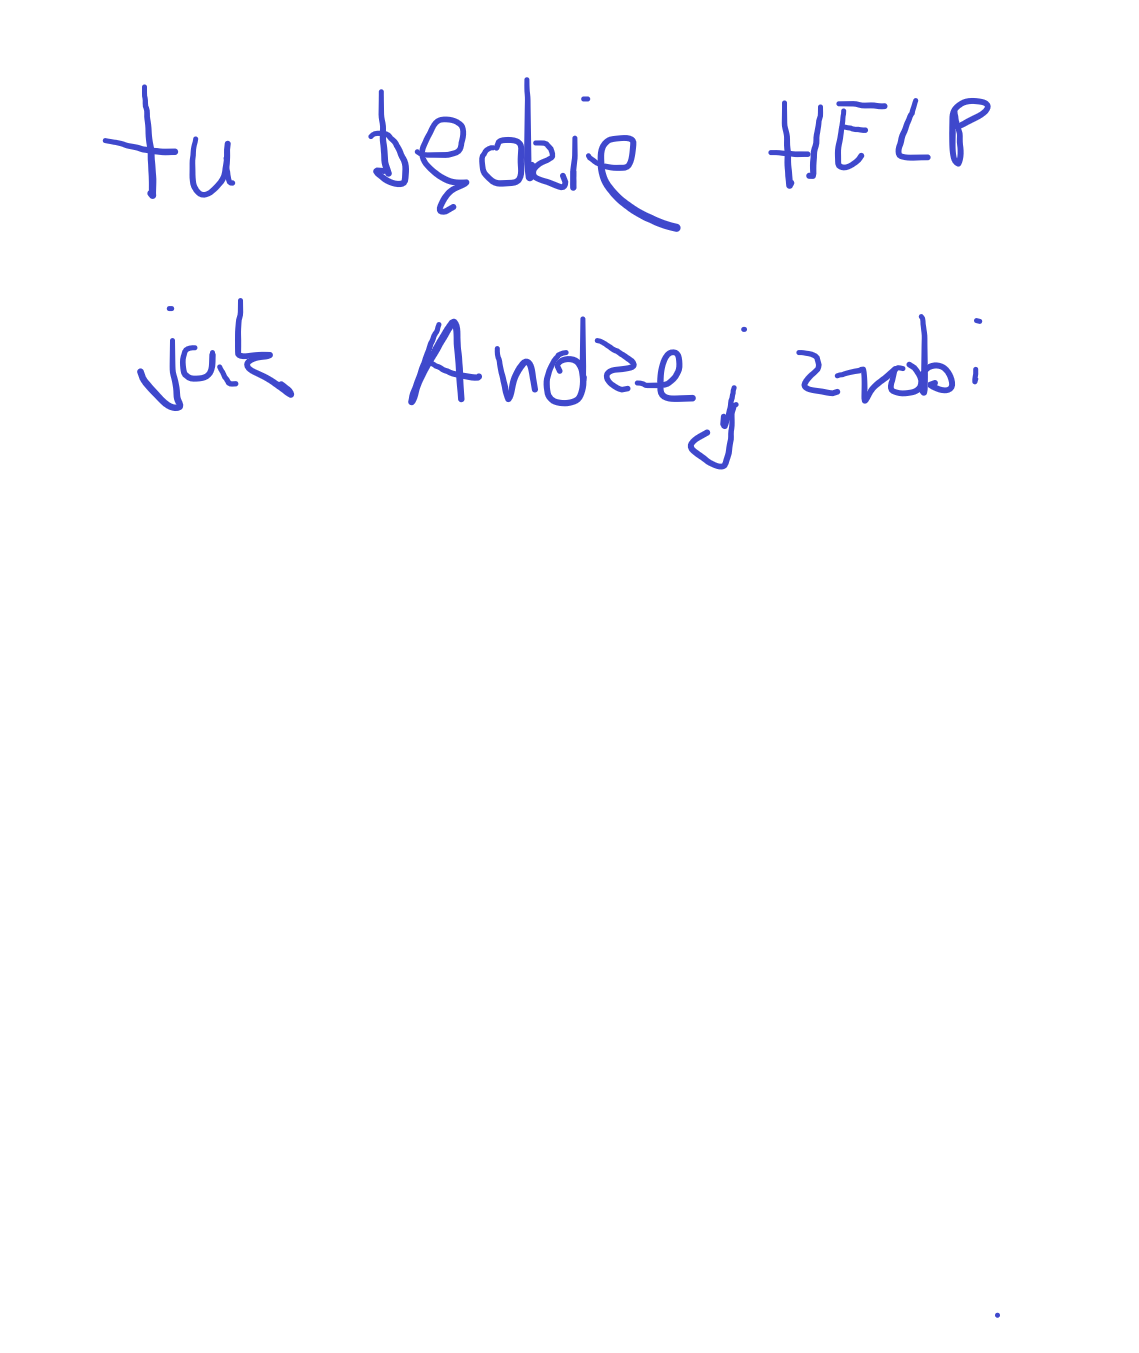 tu będzie HELP
jak Andżej zrobi